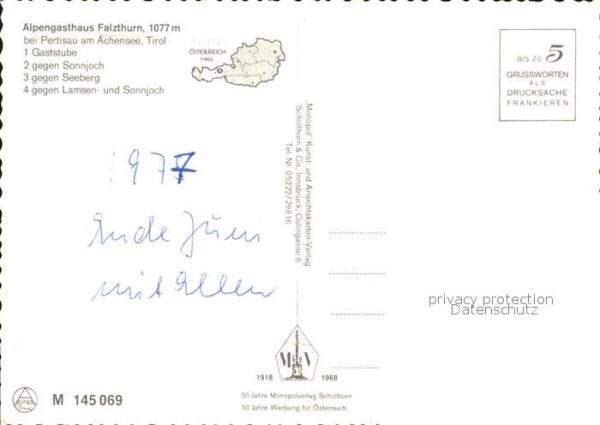 Alpengasthaus Falzthurn, 1077 m
bei Pertisau am Achensee, Tirol
1 Gaststube
2 gegen Sonnjoch
3 gegen Seeberg
4 gegen Lamsen- und Sonnjoch
ÖSTERREICH
TIROL
BIS ZU 5
GRUSSWORTEN
ALS
DRUCKSACHE
FRANKIEREN
"Monopol" Kunst- und Ansichtskarten-Verlag
Schöllhorn & Co., Innsbruck, Colingasse 6
Tel. Nr. 05222/29816
1977
Ende Juni
mit Ellen
privacy protection
Datenschutz
M V
1918 1968
ALPINA
M 145 069
50 Jahre Monopolverlag Schöllhorn
50 Jahre Werbung für Österreich